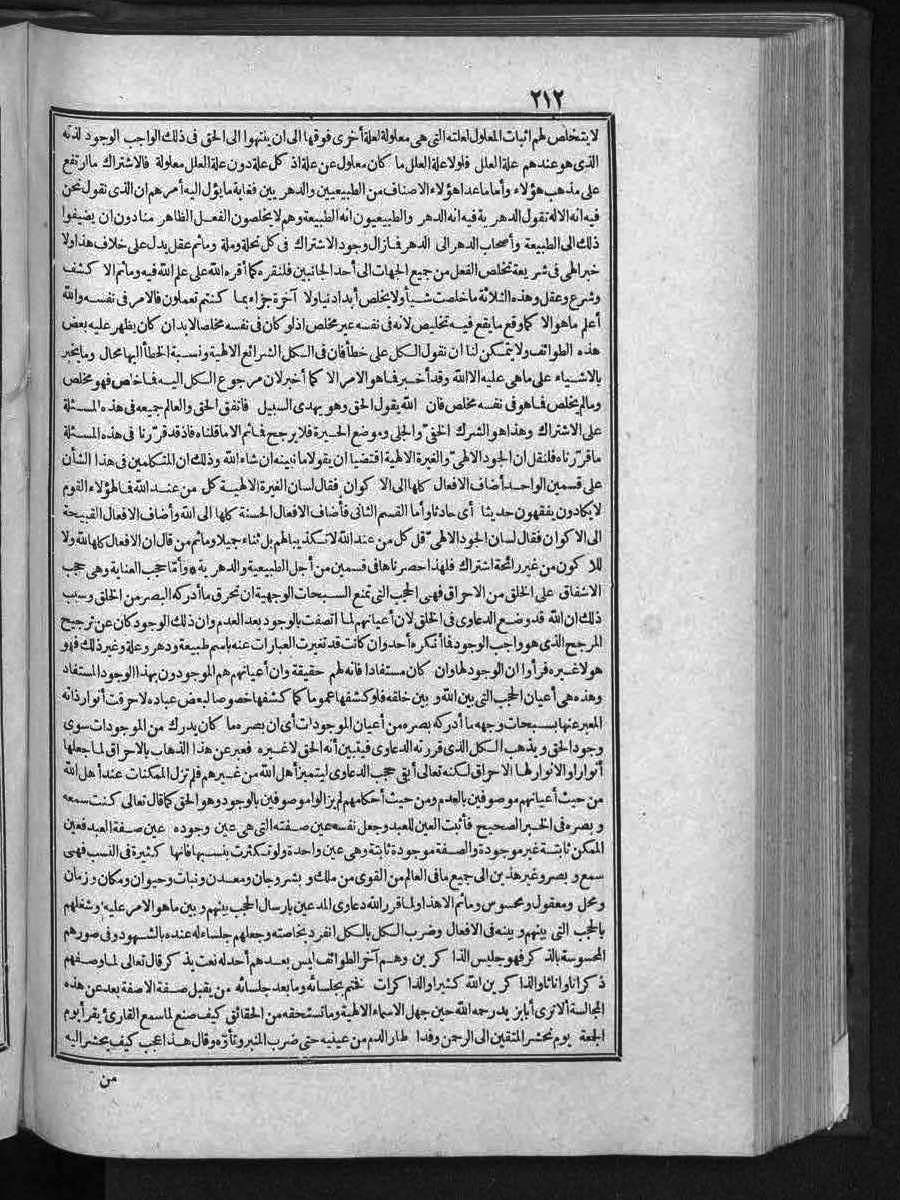 ٢١٢
لا يتخلص لهم اثبات المعلول لعلته التي هي معلولة لعلة أخرى فوقها الى ان ينتهوا الى الحق في ذلك الواجب الوجود لذاته
الذي هو عندهم علة العلل فلولا علة العلل ما كان معلول عن علة اذ كل علة دون علة العلل معلولة فالاشتراك ما ارتفع
على مذهب هؤلاء وأما ما عدا هؤلاء الاصناف من الطبيعيين والدهر يين فغاية ما يؤل اليه أمرهم ان الذي نقول نحن
فيه انه الاله تقول الدهر ية فيه انه الدهر والطبيعيون انه الطبيعة وهم لا يخلصون الفعل الظاهر منا دون ان يضيفوا
ذلك الى الطبيعة وأصحاب الدهر الى الدهر فما زال وجود الاشتراك في كل نحلة وملة وما ثم عقل يدل على خلاف هذا ولا
خبر الهي في شر يعة تخلص الفعل من جميع الجهات الى أحد الجانبين فلنقره كما أقره الله على علم الله فيه وما ثم الا كشف
وشرع وعقل وهذه الثلاثة ما خلصت شيأ ولا يخلص أبدا دنيا ولا آخرة جزاء بما كنتم تعملون فالامر في نفسه والله
أعلم ما هو الا كما وقع ما يقع فيه تخليص لانه في نفسه غير مخلص اذ لو كان في نفسه مخلصا لا بد ان كان يظهر عليه بعض
هذه الطوائف ولا يتمكن لنا ان نقول الكل على خطأ فان في الكل الشرائع الالهية ونسبة الخطأ اليها محال وما يخبر
بالاشياء على ما هي عليه الا الله وقد أخبر فما هو الامر الا كما أخبر لان مرجوع الكل اليه فما خلص فهو مخلص
وما لم يخلص فما هو في نفسه مخلص فان الله يقول الحق وهو يهدي السبيل فاتفق الحق والعالم جميعه في هذه المسئلة
على الاشتراك وهذا هو الشرك الخفي والجلي وموضع الحيرة فلا يرجح فما ثم الا ما قلناه فاذ قد قررنا في هذه المسئلة
ما قررناه فلنقل ان الجود الالهي والغيرة الالهية اقتضيا ان يقولا ما نبينه ان شاء الله وذلك ان المتكلمين في هذا الشأن
على قسمين الواحد أضاف الافعال كلها الى الا كوان فقال لسان الغيرة الالهية كل من عند الله فما لهؤلاء القوم
لا يكادون يفقهون حديثا أي حادثا وأما القسم الثاني فأضاف الافعال الحسنة كلها الى الله وأضاف الافعال القبيحة
الى الا كوان فقال لسان الجود الالهي قل كل من عند الله لا تكذيبا لهم بل ثناء جميلا وما ثم من قال ان الافعال كلها لله ولا
للا كون من غير رائحة اشتراك فلهذا حصرناها في قسمين من أجل الطبيعية والدهر ية * وأما حجب العناية وهي حجب
الاشفاق على الخلق من الاحراق فهي الحجب التي تمنع السبحات الوجهية ان تحرق ما أدركه البصر من الخلق وسبب
ذلك ان الله قد وضع الدعاوى في الخلق لان أعيانهم لما اتصفت بالوجود بعد العدم وان ذلك الوجود كان عن ترجيح
المرجح الذي هو واجب الوجود فما أنكره أحد وان كانت قد تغيرت العبارات عنه باسم طبيعة ودهر وعلة وغير ذلك فهو
هو لا غيره فرأوا ان الوجود لها وان كان مستفادا فانه لهم حقيقة وان أعيانهم هم الموجودون بهذا الوجود المستفاد
وهذه هي أعيان الحجب التي بين الله و بين خلقه فلو كشفها عموما كما كشفها خصوصا لبعض عباده لاحرقت أنوار ذاته
المعبر عنها بسبحات وجهه ما أدركه بصره من أعيان الموجودات أي ان بصره ما كان يدرك من الموجودات سوى
وجود الحق و يذهب الكل الذي قررته الدعاوى فيتبين أنه الحق لا غيره فعبر عن هذا الذهاب بالاحراق لما جعلها
أنوارا والانوار لها الاحراق لكنه تعالى أبقى حجب الدعاوى ليتميز أهل الله من غيرهم فلم تزل الممكنات عند أهل الله
من حيث أعيانهم موصوفين بالعدم ومن حيث أحكامهم لم يزالوا موصوفين بالوجود وهو الحق كما قال تعالى كنت سمعه
و بصره في الخبر الصحيح فأثبت العين للعبد وجعل نفسه عين صفته التي هي عين وجوده عين صفة العبد فعين
الممكن ثابتة غير موجودة والصفة موجودة ثابتة وهي عين واحدة ولو تكثرت بنسبها فانها كثيرة في النسب فهي
سمع و بصر وغير هذين الى جميع ما في العالم من القوى من ملك و بشر وجان ومعدن ونبات وحيوان ومكان وزمان
ومحل ومعقول ومحسوس وما ثم الا هذا ولما قرر الله دعاوى المدعين بارسال الحجب بينهم و بين ما هو الامر عليه وشغلهم
بالحجب التي بينهم و بينه في الافعال وضرب الكل بالكل انفرد بخاصته وجعلهم جلساء له عنده بالشهود وفي صورهم
المحسوسة بالذكر فهو جليس الذا كر ين وهم آخر الطوائف ليس بعدهم أحد له نعت يذكر قال تعالى لما وصفهم
ذكرانا واناثا والذا كر ين الله كثيرا والذا كرات فختم بجلسائه وما بعد جلسائه من يقبل صفة الا صفة بعد عن هذه
المجالسة ألا ترى أبا يز يد رحمه الله حين جهل الاسماء الالهية وما تستحقه من الحقائق كيف صنع لما سمع القارئ يقرأ يوم
الجمعة يوم نحشر المتقين الى الرحمن وفدا طار الدم من عينيه حتى ضرب المنبر وتأوّه وقال هذا عجب كيف يحشر اليه
من